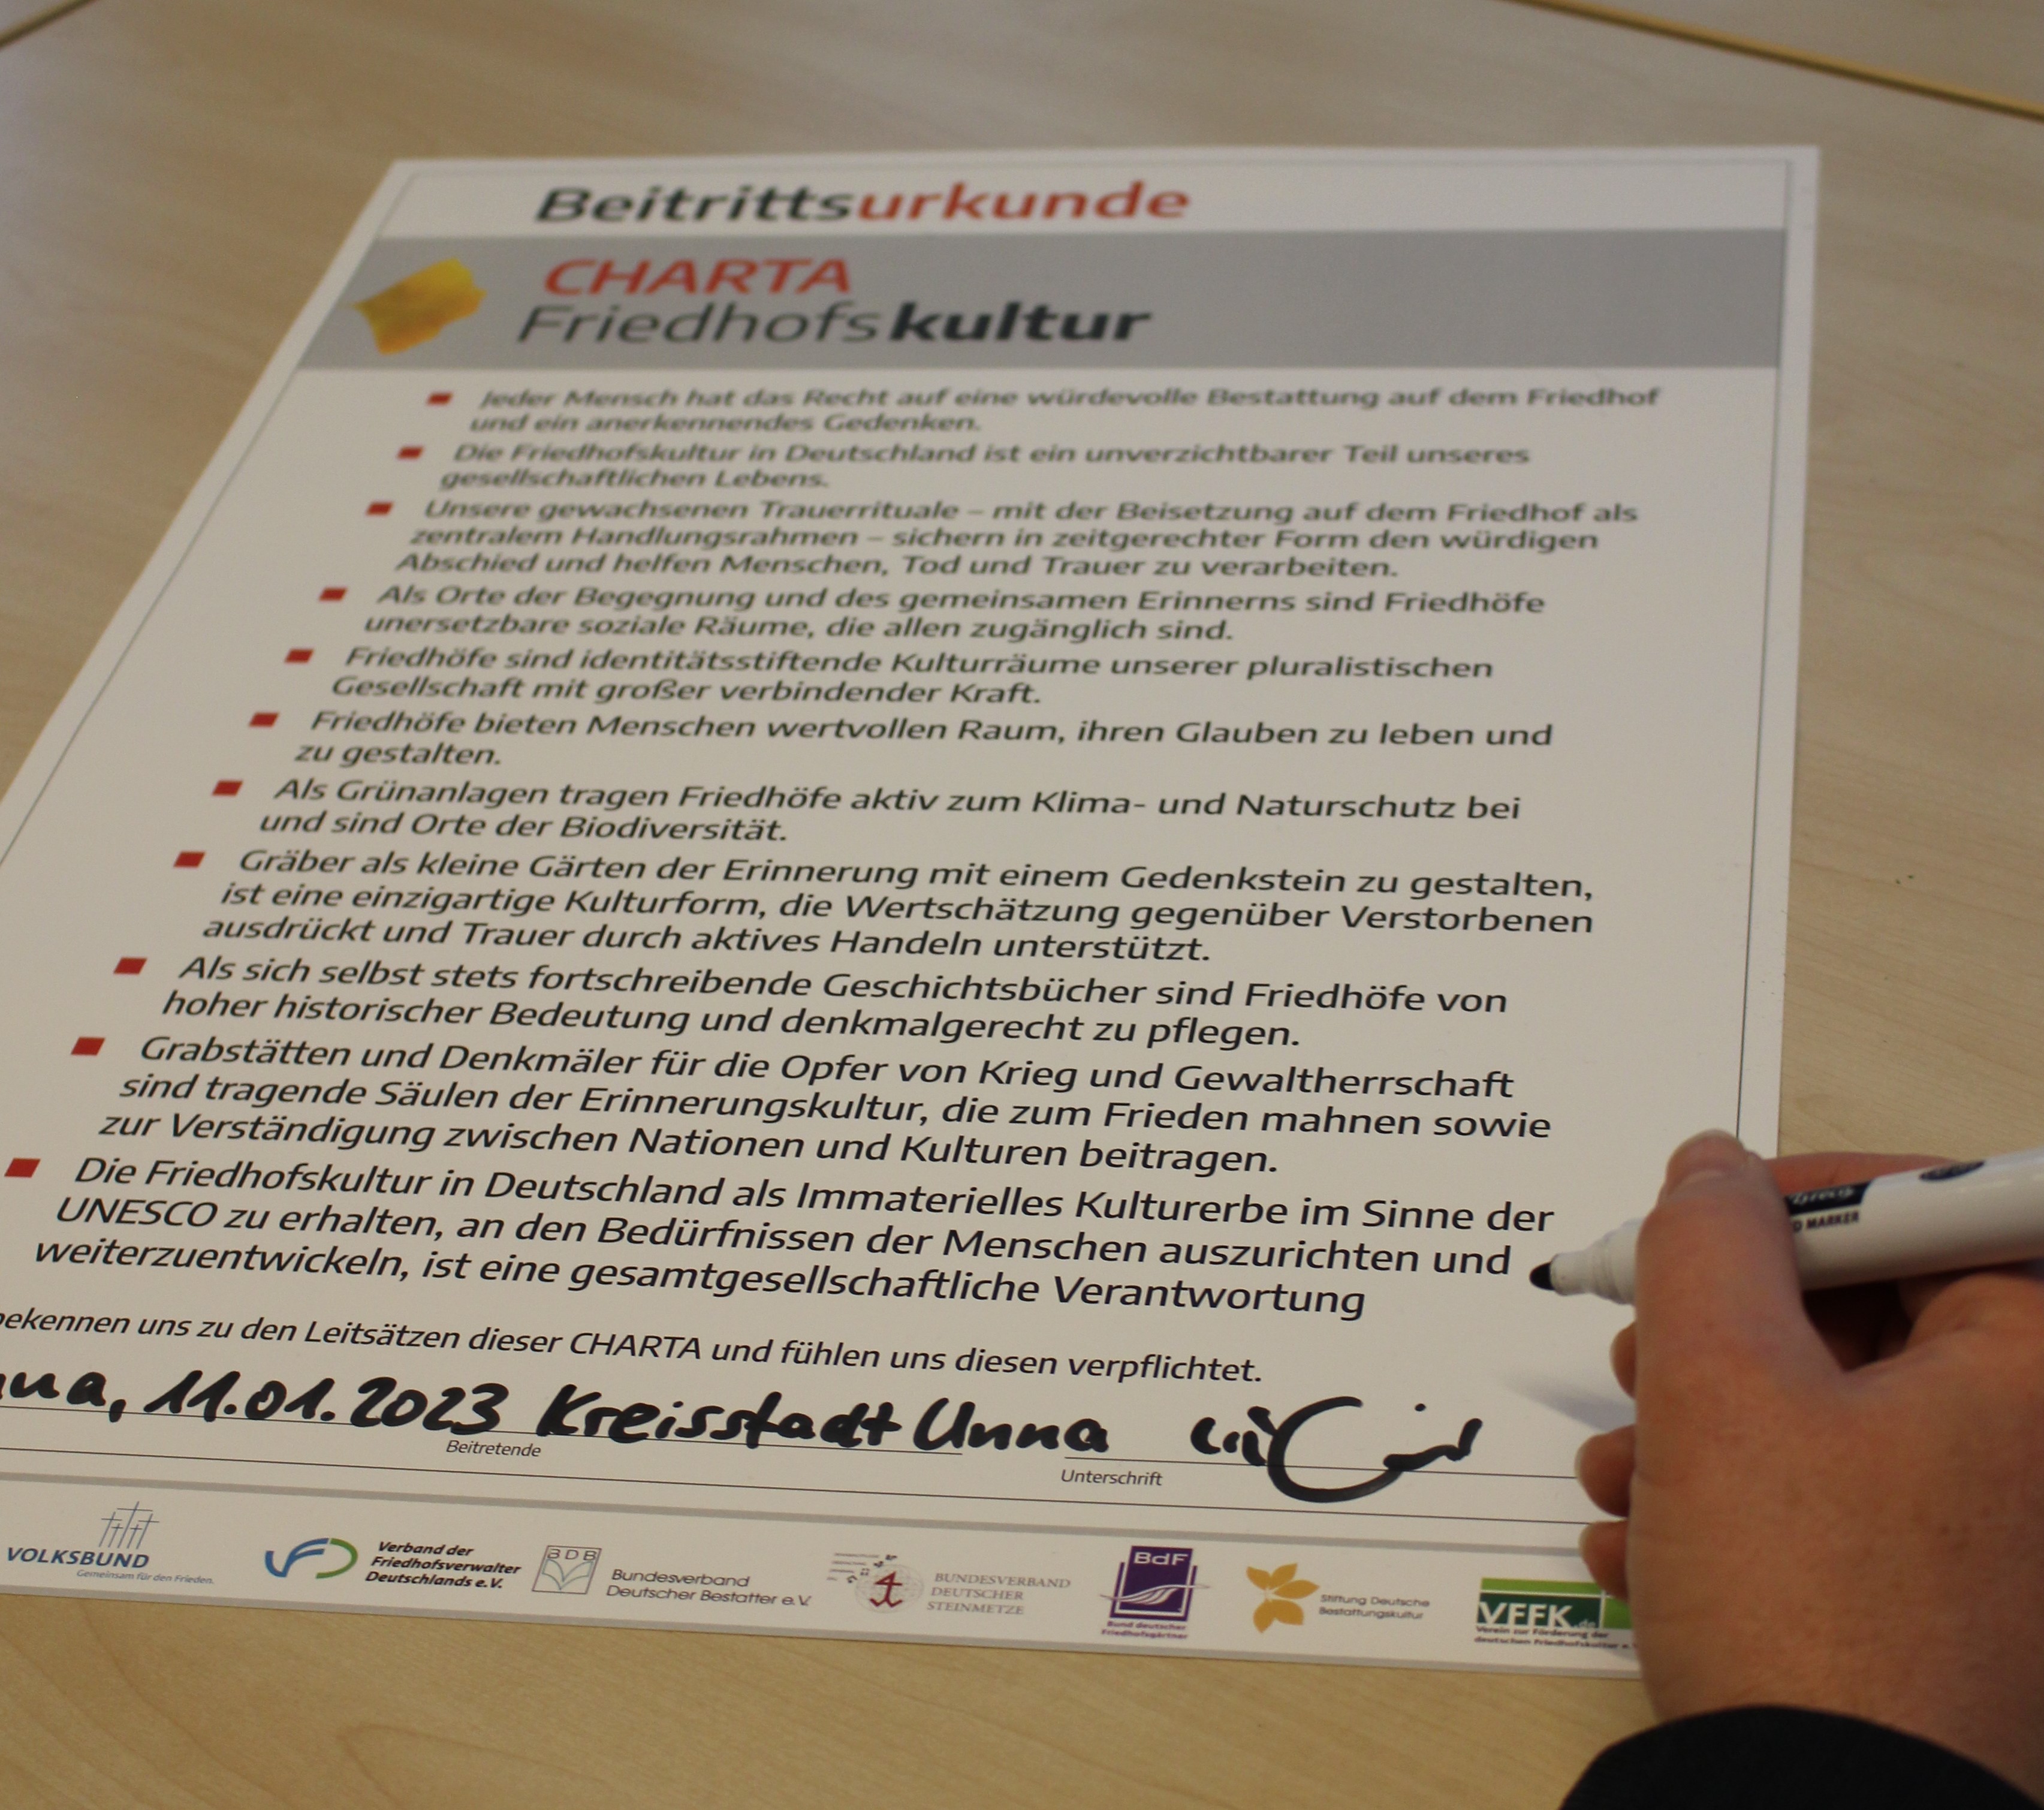 Beitrittsurkunde
CHARTA
Friedhofskultur
Jeder Mensch hat das Recht auf eine würdevolle Bestattung auf dem Friedhof
und ein anerkennendes Gedenken.
Die Friedhofskultur in Deutschland ist ein unverzichtbarer Teil unseres
gesellschaftlichen Lebens.
Unsere gewachsenen Trauerrituale – mit der Beisetzung auf dem Friedhof als
zentralem Handlungsrahmen – sichern in zeitgerechter Form den würdigen
Abschied und helfen Menschen, Tod und Trauer zu verarbeiten.
Als Orte der Begegnung und des gemeinsamen Erinnerns sind Friedhöfe
unersetzbare soziale Räume, die allen zugänglich sind.
Friedhöfe sind identitätsstiftende Kulturräume unserer pluralistischen
Gesellschaft mit großer verbindender Kraft.
Friedhöfe bieten Menschen wertvollen Raum, ihren Glauben zu leben und
zu gestalten.
Als Grünanlagen tragen Friedhöfe aktiv zum Klima- und Naturschutz bei
und sind Orte der Biodiversität.
Gräber als kleine Gärten der Erinnerung mit einem Gedenkstein zu gestalten,
ist eine einzigartige Kulturform, die Wertschätzung gegenüber Verstorbenen
ausdrückt und Trauer durch aktives Handeln unterstützt.
Als sich selbst stets fortschreibende Geschichtsbücher sind Friedhöfe von
hoher historischer Bedeutung und denkmalgerecht zu pflegen.
Grabstätten und Denkmäler für die Opfer von Krieg und Gewaltherrschaft
sind tragende Säulen der Erinnerungskultur, die zum Frieden mahnen sowie
zur Verständigung zwischen Nationen und Kulturen beitragen.
Die Friedhofskultur in Deutschland als Immaterielles Kulturerbe im Sinne der
UNESCO zu erhalten, an den Bedürfnissen der Menschen auszurichten und
weiterzuentwickeln, ist eine gesamtgesellschaftliche Verantwortung
bekennen uns zu den Leitsätzen dieser CHARTA und fühlen uns diesen verpflichtet.
11.01.2023 Kreisstadt Unna
Beitretende
Unterschrift
VOLKSBUND
Gemeinsam für den Frieden.
Verband der
Friedhofsverwalter
Deutschlands e.V.
BDB
Bundesverband
Deutscher Bestatter e.V.
BUNDESVERBAND
DEUTSCHER
STEINMETZE
BdF
Bund deutscher
Friedhofsgärtner
Stiftung Deutsche
Bestattungskultur
VFFK.de
Verein zur Förderung der
deutschen Friedhofskultur e.
MARKER